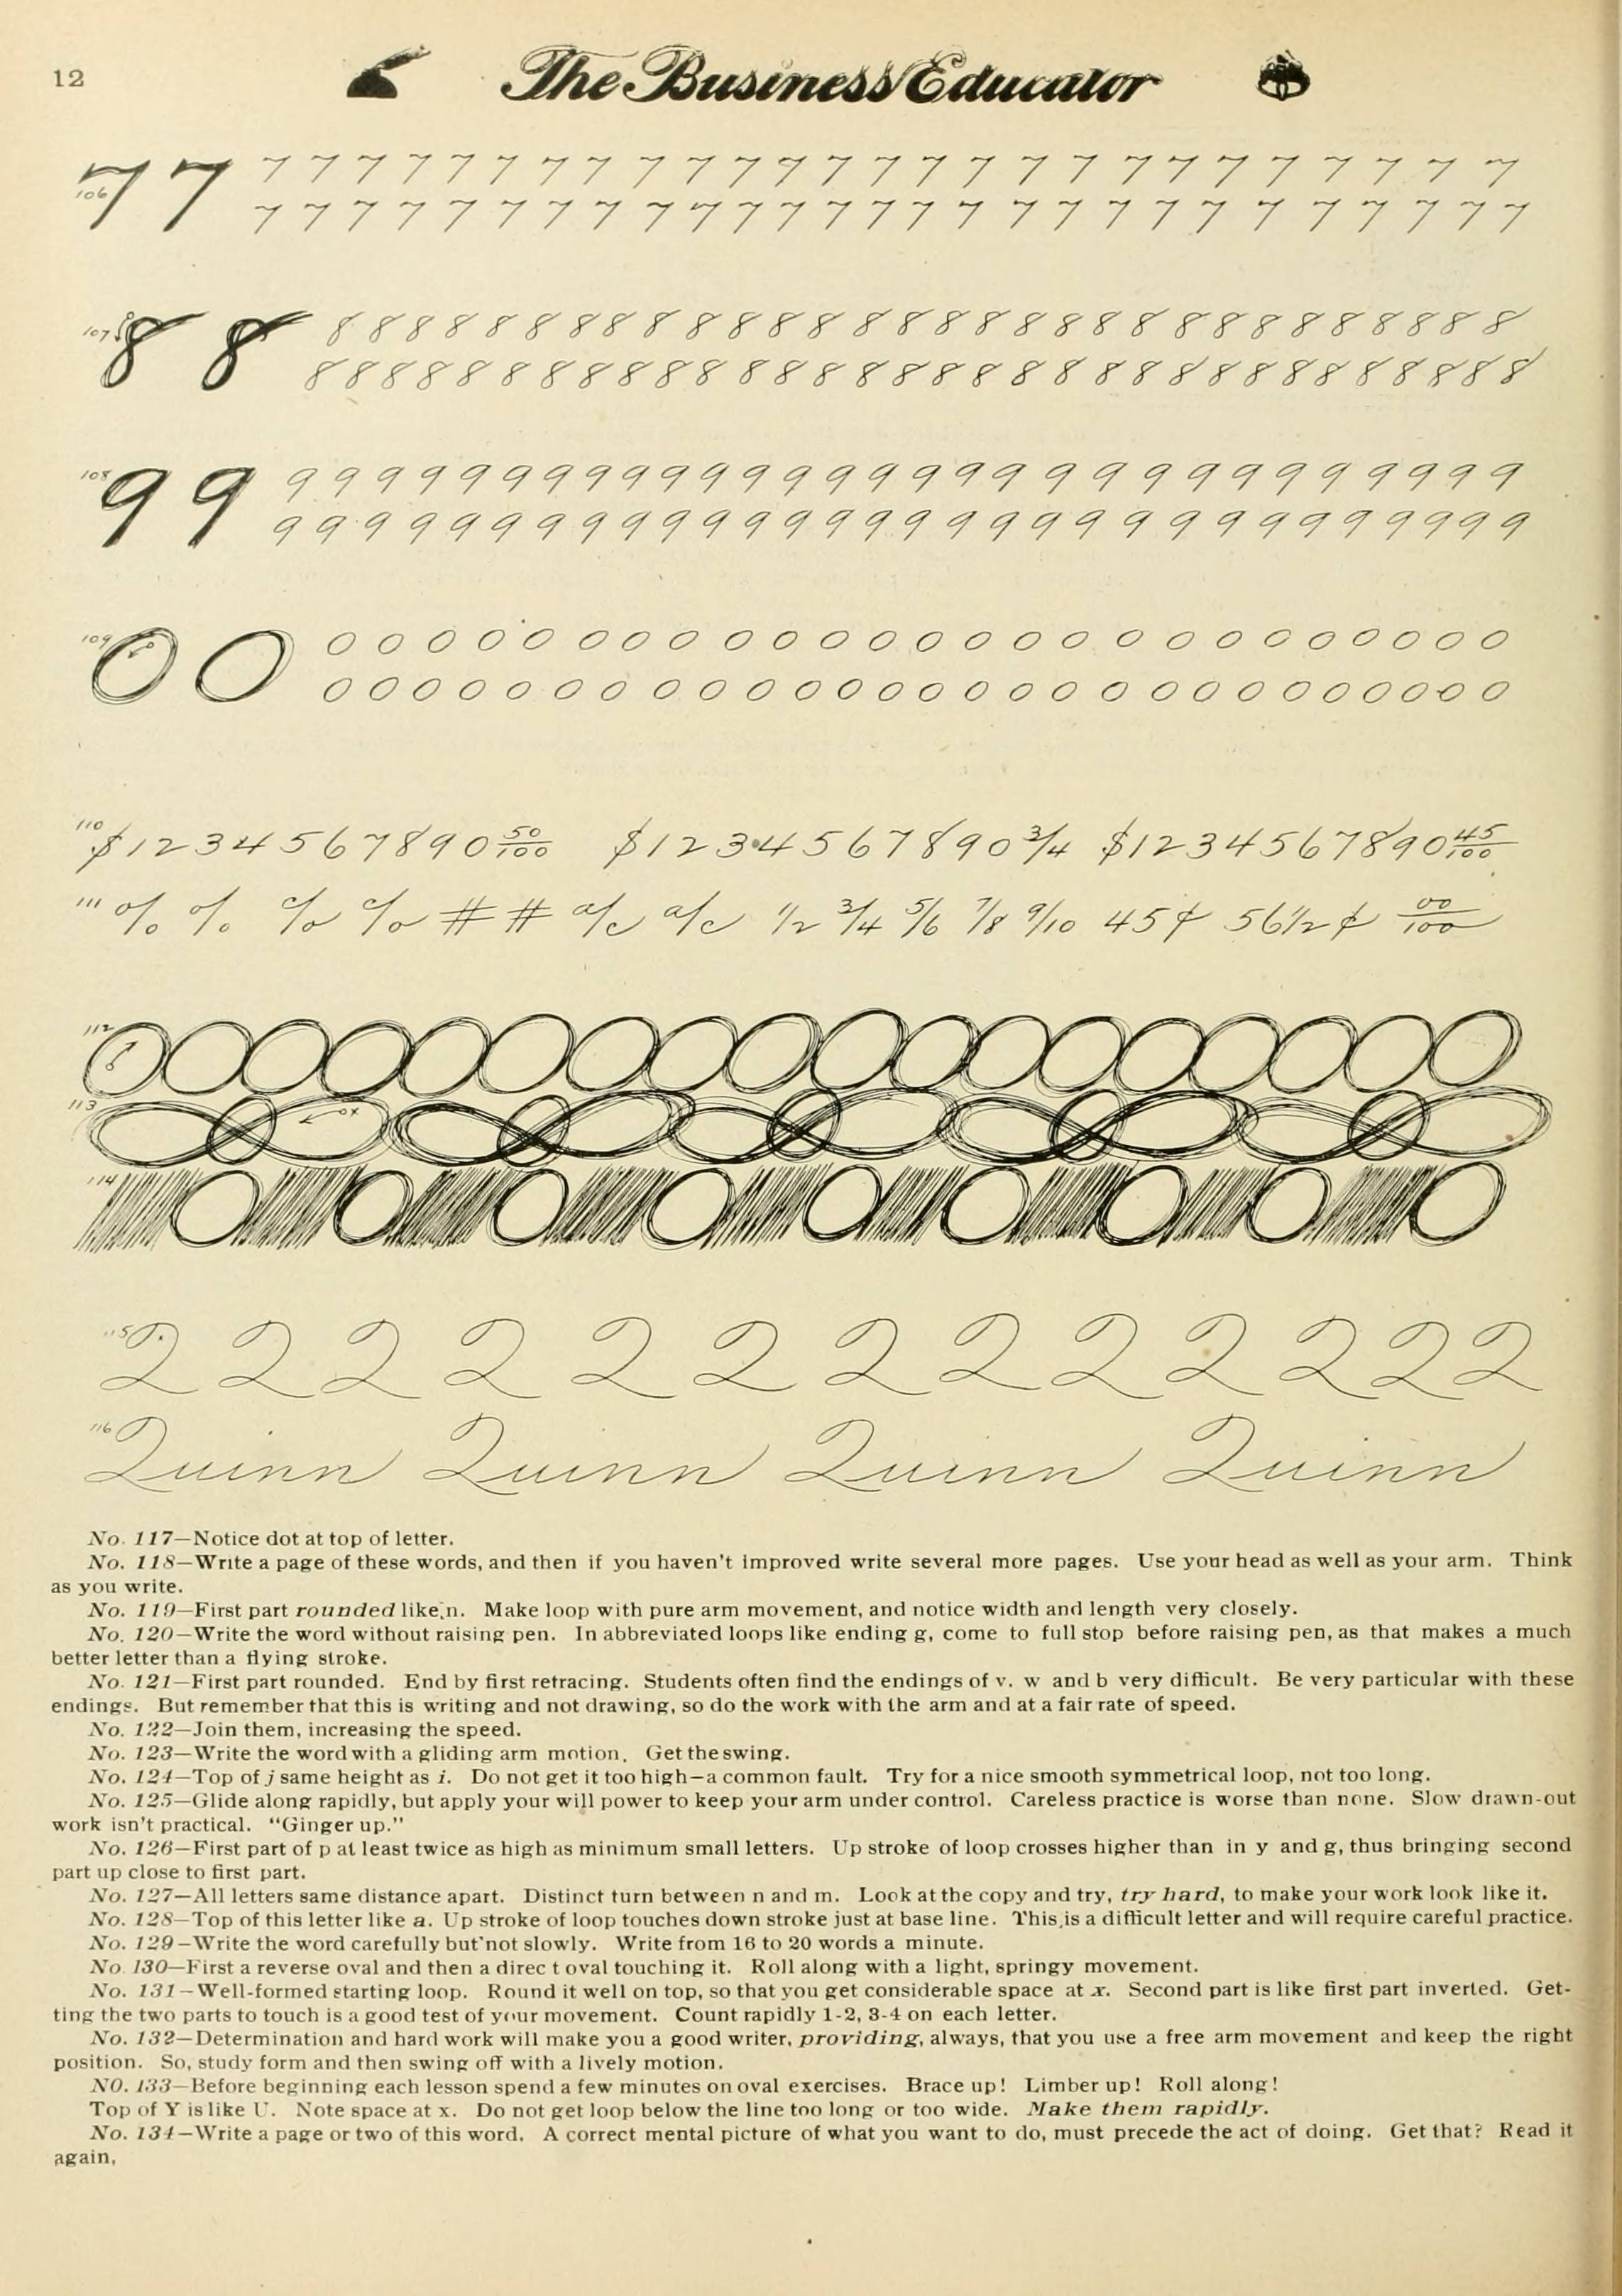 12
The Business Educator
106 7 7 7 7 7 7 7 7 7 7 7 7 7 7 7 7 7 7 7 7 7 7 7 7 7 7 7 7
7 7 7 7 7 7 7 7 7 7 7 7 7 7 7 7 7 7 7 7 7 7 7 7 7 7 7
107 8 8 8 8 8 8 8 8 8 8 8 8 8 8 8 8 8 8 8 8 8 8 8 8 8 8 8 8 8 8 8 8
8 8 8 8 8 8 8 8 8 8 8 8 8 8 8 8 8 8 8 8 8 8 8 8 8 8 8 8 8 8 8 8
108 9 9 9 9 9 9 9 9 9 9 9 9 9 9 9 9 9 9 9 9 9 9 9 9 9 9 9 9 9 9 9
9 9 9 9 9 9 9 9 9 9 9 9 9 9 9 9 9 9 9 9 9 9 9 9 9 9 9 9 9 9
109 0 0 0 0 0 0 0 0 0 0 0 0 0 0 0 0 0 0 0 0 0 0 0 0 0 0 0
0 0 0 0 0 0 0 0 0 0 0 0 0 0 0 0 0 0 0 0 0 0 0 0 0 0 0
110 $1234567890 50/100 $1234567890 3/4 $1234567890 45/100
111 % % % % # # a/c a/c 1/2 3/4 5/6 7/8 9/10 45¢ 56 1/2 ¢ 00/100
112
113
114
115 Q Q Q Q Q Q Q Q Q Q Q Q Q
116 Quinn Quinn Quinn Quinn
No. 117—Notice dot at top of letter.
No. 118—Write a page of these words, and then if you haven't improved write several more pages. Use your head as well as your arm. Think
as you write.
No. 119—First part rounded like n. Make loop with pure arm movement, and notice width and length very closely.
No. 120—Write the word without raising pen. In abbreviated loops like ending g, come to full stop before raising pen, as that makes a much
better letter than a flying stroke.
No. 121—First part rounded. End by first retracing. Students often find the endings of v. w and b very difficult. Be very particular with these
endings. But remember that this is writing and not drawing, so do the work with the arm and at a fair rate of speed.
No. 122—Join them, increasing the speed.
No. 123—Write the word with a gliding arm motion. Get the swing.
No. 124—Top of j same height as i. Do not get it too high—a common fault. Try for a nice smooth symmetrical loop, not too long.
No. 125—Glide along rapidly, but apply your will power to keep your arm under control. Careless practice is worse than none. Slow drawn-out
work isn't practical. "Ginger up."
No. 126—First part of p at least twice as high as minimum small letters. Up stroke of loop crosses higher than in y and g, thus bringing second
part up close to first part.
No. 127—All letters same distance apart. Distinct turn between n and m. Look at the copy and try, try hard, to make your work look like it.
No. 128—Top of this letter like a. Up stroke of loop touches down stroke just at base line. This is a difficult letter and will require careful practice.
No. 129—Write the word carefully but not slowly. Write from 16 to 20 words a minute.
No. 130—First a reverse oval and then a direc t oval touching it. Roll along with a light, springy movement.
No. 131—Well-formed starting loop. Round it well on top, so that you get considerable space at x. Second part is like first part inverted. Get-
ting the two parts to touch is a good test of your movement. Count rapidly 1-2, 3-4 on each letter.
No. 132—Determination and hard work will make you a good writer, providing, always, that you use a free arm movement and keep the right
position. So, study form and then swing off with a lively motion.
NO. 133—Before beginning each lesson spend a few minutes on oval exercises. Brace up! Limber up! Roll along!
Top of Y is like U. Note space at x. Do not get loop below the line too long or too wide. Make them rapidly.
No. 134—Write a page or two of this word. A correct mental picture of what you want to do, must precede the act of doing. Get that? Read it
again,